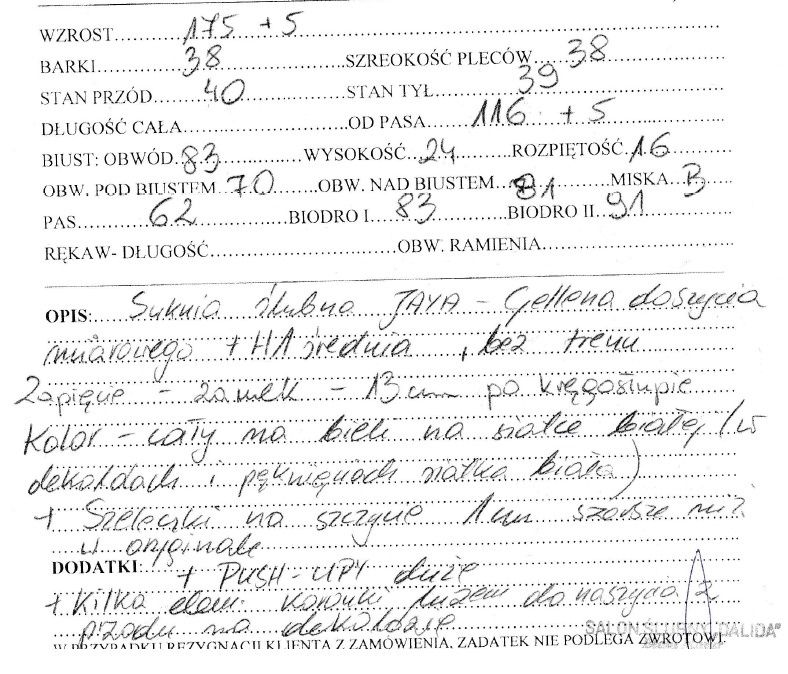 WZROST 175 + 5
BARKI 38 SZREOKOŚĆ PLECÓW 38
STAN PRZÓD 40 STAN TYŁ 39
DŁUGOŚĆ CAŁA OD PASA 116 + 5
BIUST: OBWÓD 83 WYSOKOŚĆ 24 ROZPIĘTOŚĆ 16
OBW. POD BIUSTEM 70 OBW. NAD BIUSTEM 81 MISKA B
PAS 62 BIODRO I 83 BIODRO II 91
RĘKAW- DŁUGOŚĆ OBW. RAMIENIA
OPIS: Suknia ślubna JAYA - do szycia
miarowego + HA średnia, bez trenu
Zapięcie - zamek - 13 cm po kręgosłupie
Kolor - cały na bieli na siatce białej (w
dekoldach i pęknięciach siatka biała)
+ Szeleczki na szczycie 1 cm szersze niż
w oryginale
DODATKI: + PUSH-UPY duże
+ Kilka elem. koronki luzem do naszycia z
przodu na dekoldzie
SALON ŚLUBNY "DALIDA"
W PRZYPADKU REZYGNACJI KLIENTA Z ZAMÓWIENIA, ZADATEK NIE PODLEGA ZWROTOWI.